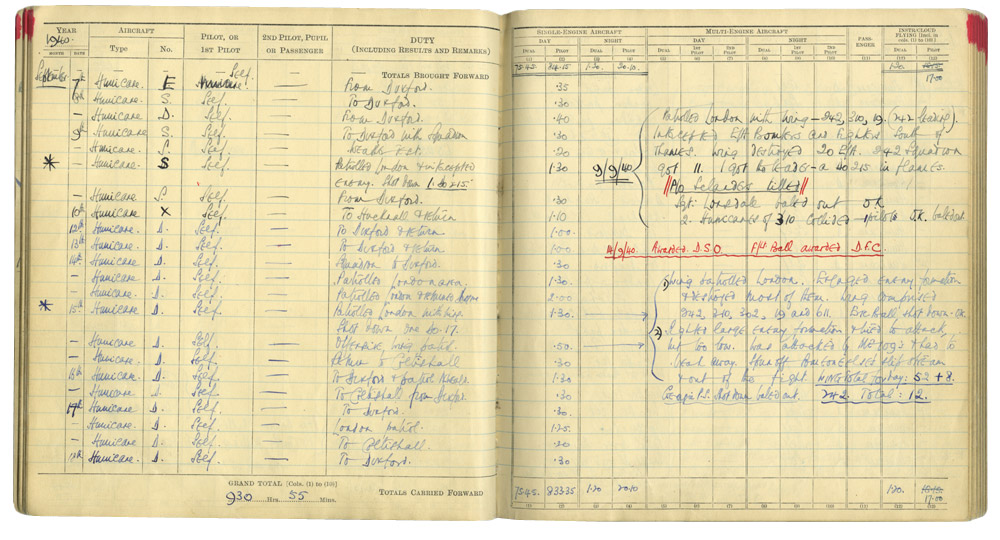 YEAR
AIRCRAFT
PILOT, OR
1ST PILOT
2ND PILOT, PUPIL
OR PASSENGER
DUTY
(INCLUDING RESULTS AND REMARKS)
1940
MONTH DATE
Type No.
September
Self. TOTALS BROUGHT FORWARD
7th Hurricane E Hurricane — From Duxford.
8th Hurricane S. Self. — To Duxford.
— Hurricane D. Self. — From Duxford.
9th Hurricane S. Self. — To Duxford with Squadron
— Hurricane. S. Self. —
* — Hurricane S Self. — Patrolled London & intercepted
Enemy. Shot down 1.Do 215.
— Hurricane S. Self. — From Duxford.
10th Hurricane X Self. — To Hucknall & return
12th Hurricane D. Self. — To Duxford & return
13th Hurricane D. Self. — To Duxford & return
14th Hurricane. D. Self. — Squadron to Duxford.
— Hurricane. D. Self. — Patrolled London area.
— Hurricane. D. Self. — Patrolled London
* 15th Hurricane. D. Self. — Patrolled London with Wing.
Shot down one Do.17.
— Hurricane. D. Self. — Offensive Wing patrol.
— Hurricane. D. Self. — Return to Coltishall
16th Hurricane. D. Self. — To Duxford & patrol
— Hurricane D. Self. — To Coltishall from Duxford.
17th Hurricane D. Self. — To Duxford.
— Hurricane D. Self. — London patrol.
— Hurricane. D. Self. — To Coltishall.
18th Hurricane. D. Self. — To Duxford.
GRAND TOTAL [Cols. (1) to (10)]
930 Hrs. 55 Mins.
TOTALS CARRIED FORWARD
SINGLE-ENGINE AIRCRAFT
MULTI-ENGINE AIRCRAFT
PASS-
ENGER
INSTR/CLOUD
FLYING [Incl. in
cols. (1) to (10)]
DAY NIGHT DAY NIGHT
DUAL PILOT DUAL PILOT DUAL 1ST PILOT 2ND PILOT DUAL 1ST PILOT 2ND PILOT DUAL PILOT
(1) (2) (3) (4) (5) (6) (7) (8) (9) (10) (11) (12) (13)
75.45 1.20 20.10 1.20
17.00
.35
.30
.40 Patrolled London with Wing — 242, 310, 19. (242 leading).
.30 Intercepted E/A Bombers and Fighters South of
.20 Thames. Wing destroyed 20 E/A. 242 Squadron
1.30 9/9/40 got 11. I got the leader — a Do 215 in flames.
P/O Sclanders killed
.30 Sgt. Lonsdale baled out OK
1.10 2 Hurricanes of 310 Collided
1.00
1.00 14/9/40. Awarded D.S.O F/Lt Ball awarded D.F.C.
.30
1.30 1) Wing patrolled London. Engaged enemy formation
2.00 & destroyed most of them. Wing comprised
1.30 242, 310, 302, 19 and 611. Eric Ball shot down. OK.
2) Sighted large enemy formation & tried to attack,
.50 but too low. Was attacked by Me 109's & had to
.30 break away. Spun off someone else's slipstream
1.30 & out of the fight. WING Total for day: 52 + 8.
.30 shot down baled out. 242 Total: 12.
.30
1.25
.20
.30
75.45. 833.35 1.20 20.10 1.20.
17.00
(1) (2) (3) (4) (5) (6) (7) (8) (9) (10) (11) (12) (13)